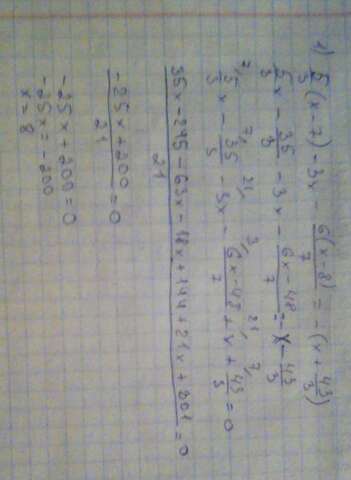 1) 5/3 (x-7) - 3x - 6(x-8)/7 = -(x + 43/3)
5/3 x - 35/3 - 3x - 6x-48/7 = -x - 43/3
7/ 5/3 x - 7/ 35/3 - 21/ 3x - 3/ 6x-48/7 + 21/ x + 7/ 43/3 = 0
35x-245-63x-18x+144+21x+301/21 = 0
-25x+200/21 = 0
-25x+200=0
-25x=-200
x=8